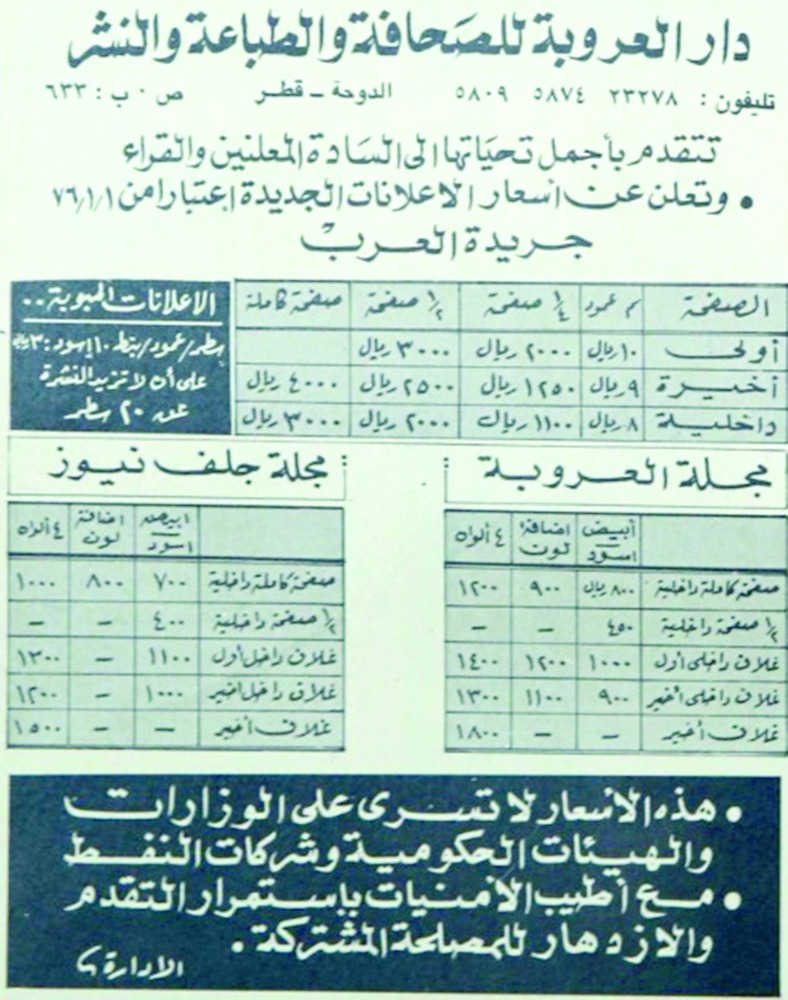 دار العروبة للصحافة والطباعة والنشر
تليفون : ٢٣٢٧٨ ٥٨٧٤ ٥٨٠٩ الدوحة ــ قطر ص ٠ ب : ٦٣٣
تتقدم بأجمل تحياتها الى السادة المعلنين والقراء
• وتعلن عن أسعار الاعلانات الجديدة إعتبارا من ٧٦/١/١
جريدة العرب
الصفحة سم عمود ١/٤ صفحة ١/٢ صفحة صفحة كاملة
أولى ١٠ ريال ٢٠٠٠ ريال ٣٠٠٠ ريال
أخيرة ٩ ريال ١٢٥٠ ريال ٢٥٠٠ ريال ٤٠٠٠ ريال
داخلية ٨ ريال ١١٠٠ ريال ٢٠٠٠ ريال ٣٠٠٠ ريال
الاعلانات المبوبة ..
سطر/عمود/بنط ١٠ إسود : ٣ ريال
على أن لا تزيد النشرة
عن ٢٠ سطر
مجلة العروبة
أبيض اسود اضافة لون ٤ ألوان
صفحة كاملة داخلية ٨٠٠ ريال ٩٠٠ ١٢٠٠
١/٢ صفحة داخلية ٤٥٠ – –
غلاف داخلى أول ١٠٠٠ ١٢٠٠ ١٤٠٠
غلاف داخلى أخير ٩٠٠ ١١٠٠ ١٣٠٠
غلاف أخير – – ١٨٠٠
مجلة جلف نيوز
ابيض اسود اضافة لون ٤ ألوان
صفحة كاملة داخلية ٧٠٠ ٨٠٠ ١٠٠٠
١/٢ صفحة داخلية ٤٠٠ – –
غلاف داخل أول ١١٠٠ – ١٣٠٠
غلاف داخل اخير ١٠٠٠ – ١٢٠٠
غلاف أخير – – ١٥٠٠
• هذه الأسعار لا تسرى على الوزارات
والهيئات الحكومية وشركات النفط
• مع أطيب الأمنيات بإستمرار التقدم
والازدهار للمصلحة المشتركة .
الادارة